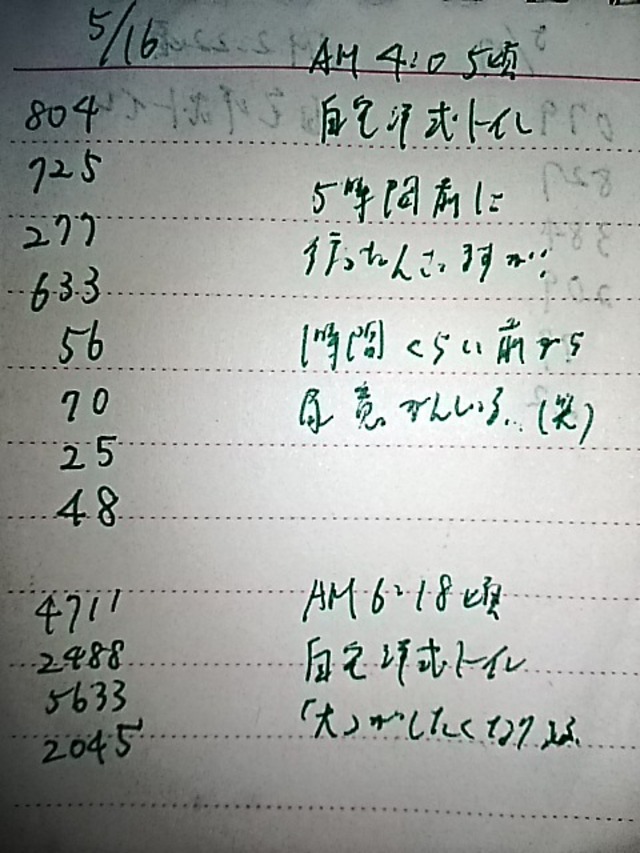 5/16
AM 4:05頃
804 自宅洋式トイレ
725
277 5時間前に
633 行ったんですが…
56 1時間くらい前から
70 尿意が (笑)
25
48
4711 AM 6:18頃
2488 自宅洋式トイレ
5633 「大」がしたくなり
2045